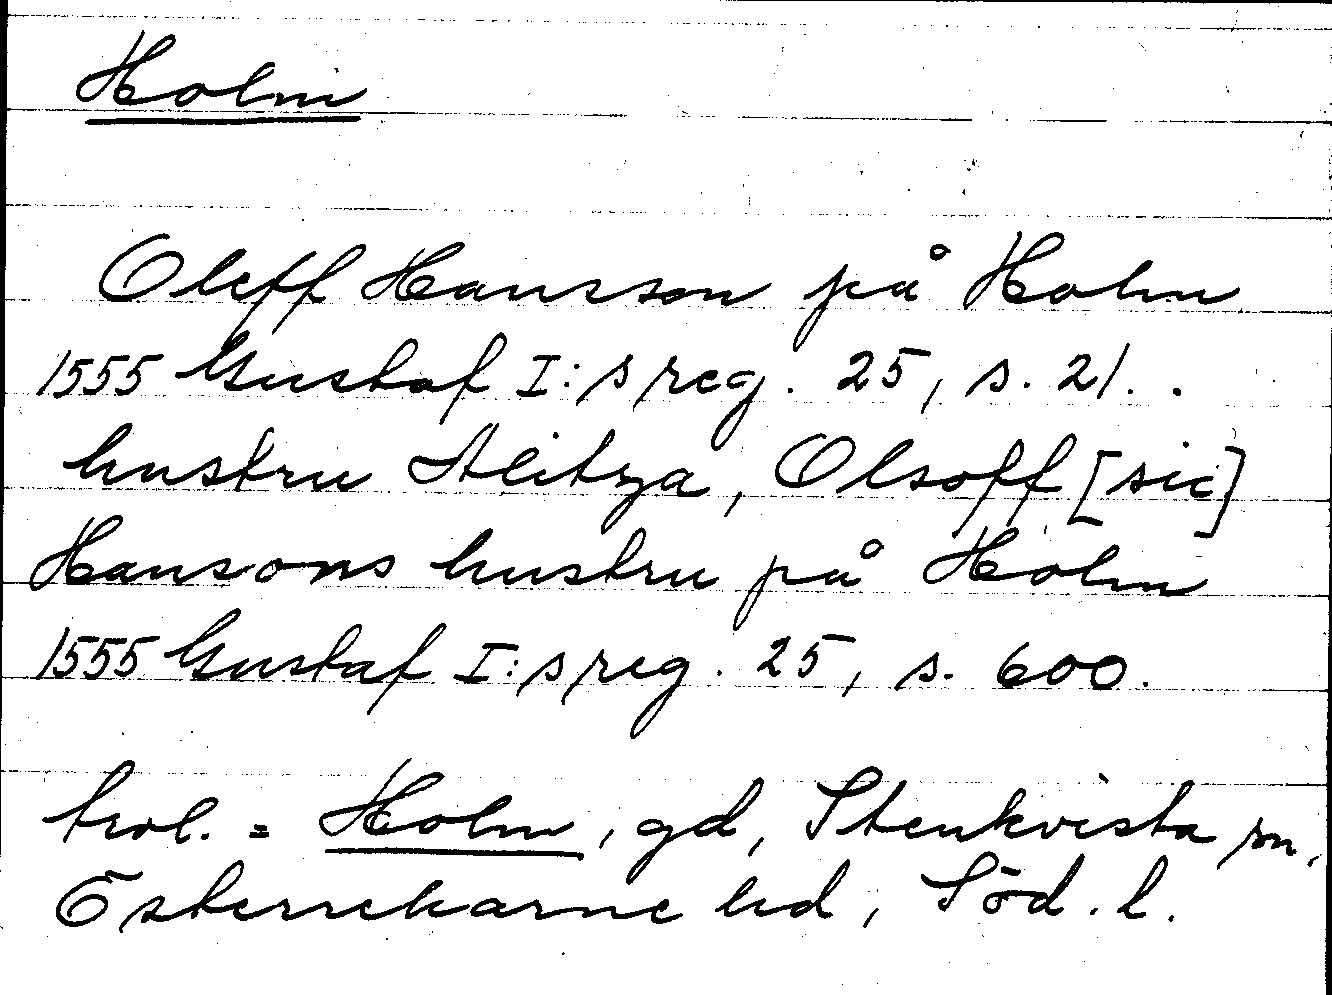 Holm
Oleff Hansson på Holm
1555 Gustaf I:s reg. 25, s. 21. .
hustru Alitza, Olsoff [sic]
Hansons hustru på Holm
1555 Gustaf I:s reg. 25, s. 600.
trol. = Holm, gd, Stenkvista sn,
Österrekarne hd, Söd. l.